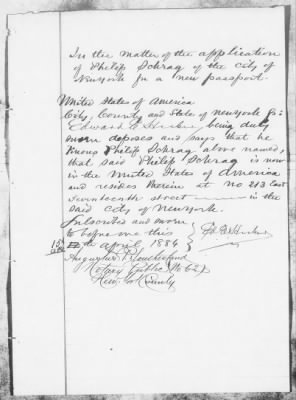 In the matter of the application
of Philip Schrag of the city of
Newyork for a new passport.
United States of America
City, County and State of newyork ss:
Edward being duly
sworn deposes and says that he
knows Philip Schrag above named,
that said Philip Schrag is now
in the United States of America
and resides therein at no 213 East
Seventeenth street in the
said city of Newyork.
Subscribed and sworn
to before me this
15th
april 1884
Augustus
Notary Public No 62
New York County